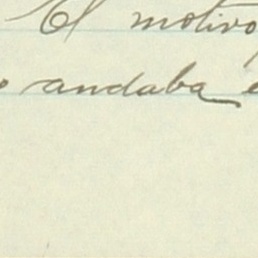 El motivo
andaba